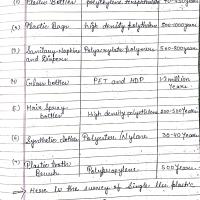 (1) Plastic Bottles polyethylene terephthalate
(2) Plastic Bags high density polythene 500-1000 years
(3) Sanitary Napkins and Diapers Polyacrylate polymers 500-800 years
(4) Glass bottles PET and HDP 1-2 million Years
(5) Hair Spray bottles High density polyethylene 200-500 Years
(6) Synthetic clothes Polyester/Nylone 30-40 Years
(7) Plastic tooth Brush Polypropylene 500 Years
Here is the survey of single use plastic